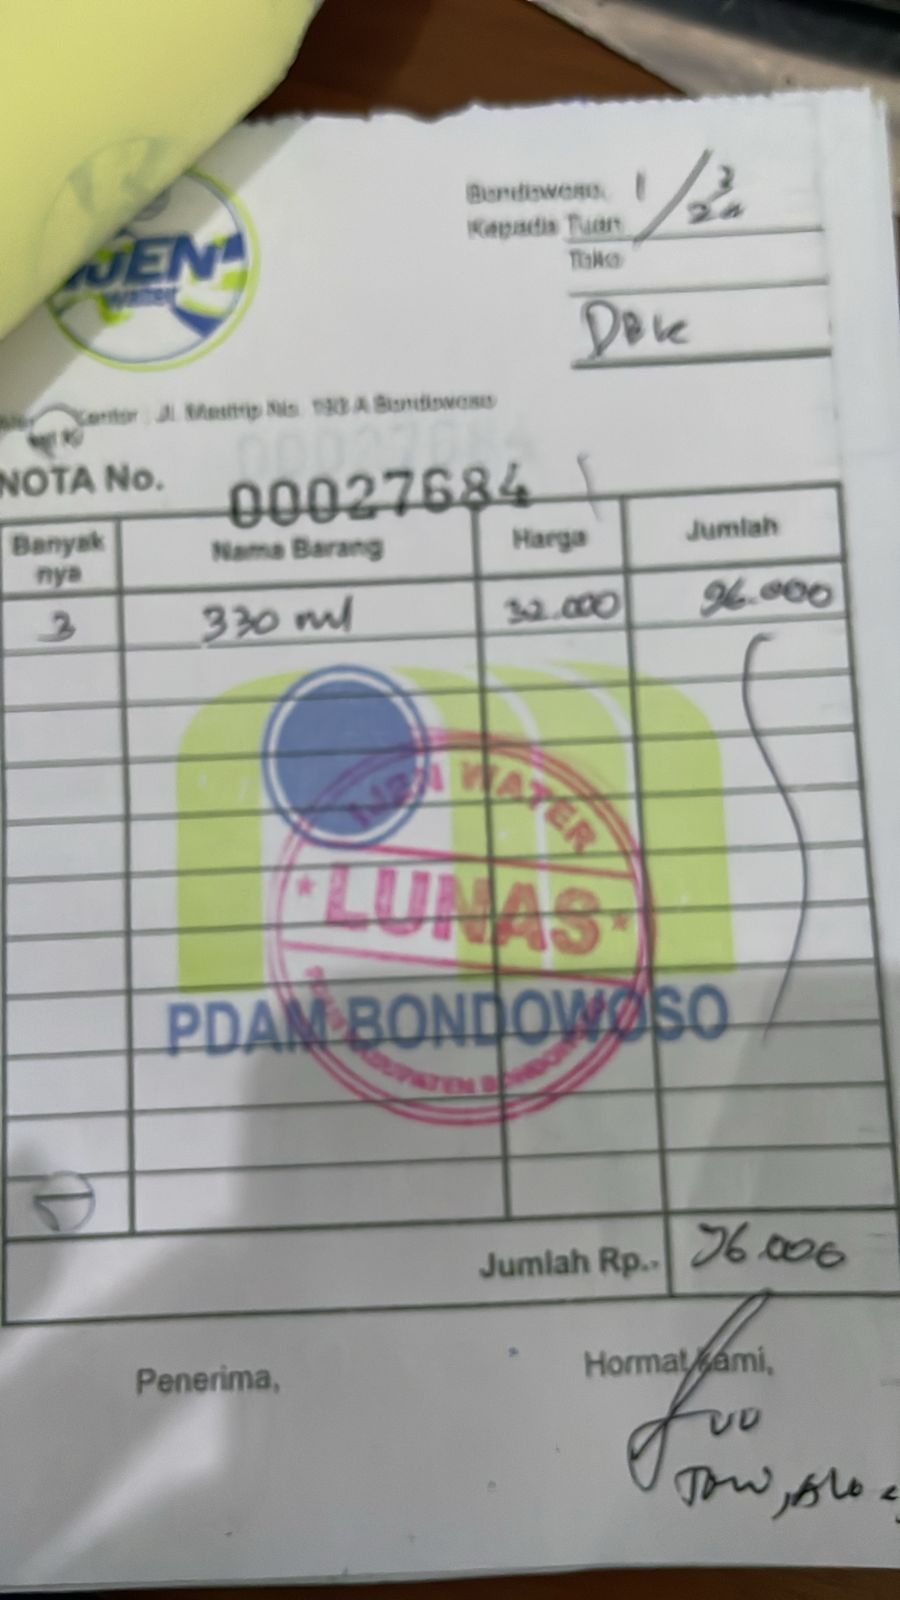 IJEN
Water
Bondowoso, 1/3
24
Kepada Tuan
Toko
Kantor : Jl. Mastrip No. 193 A Bondowoso
NOTA No. 00027684
Banyak nya Nama Barang Harga Jumlah
3 330 ml 32.000 96.000
IJEN WATER
LUNAS
PDAM BONDOWOSO
KABUPATEN BONDOWOSO
Jumlah Rp.- 96.000
Penerima, Hormat kami,